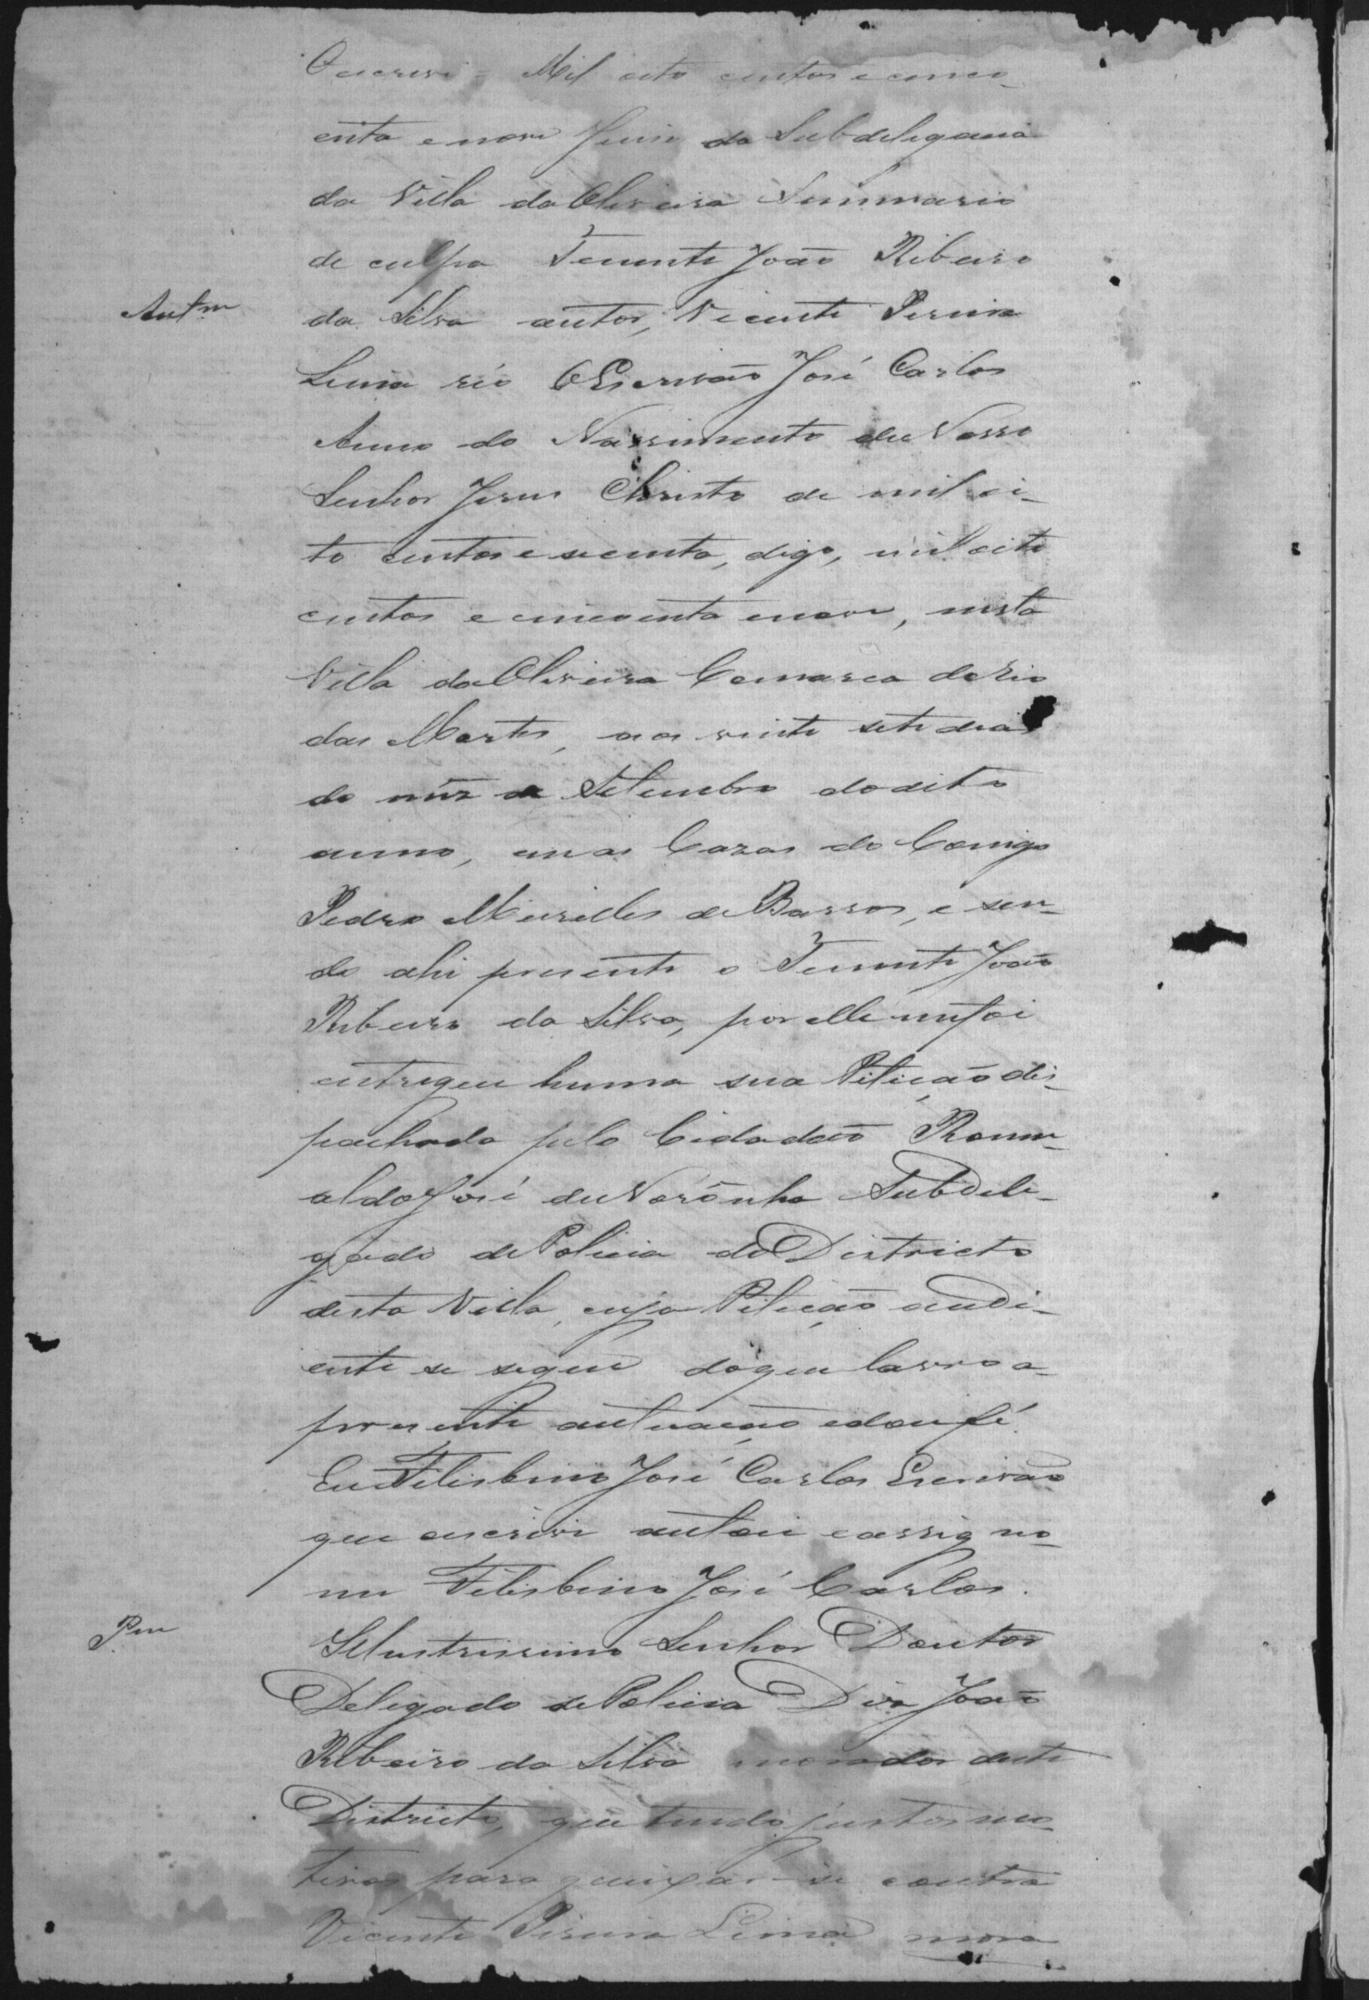 Oescrevi - Mil oito centos e cinco-
enta e nove Juiso da Subdelegacia
da Villa da Oliveira Summario
de culpa Tenente João Ribeiro
Autm
da Silva autor, Vicente Pereira
Lima réo OEscrivão José Carlos
Anno do Nascimento deNosso
Senhor Jesus Christo de mil oi-
to centos e secenta, digo, mil oito
centos e cincoenta enove, nesta
Villa daOliveira Comarca doRio
das Mortes, aos vinte sete dias
do mêz de Setembro do dito
anno, em as Cazas do Conigo
Pedro Meirelles de Barros, e sen-
do ahi presente o Tenente João
Ribeiro da Silva, por elle mefoi
entregue huma sua Petição dis-
pachada pelo Cidadão Romu-
aldo José deNorônha SubDele-
gado de Policia do Districto
desta Villa, cuja Petição audi-
ente se segue doque lavro a
presente autuação edoufé.
EuFelisbino José Carlos Escrivão
que escrevi autoei eassigno
me Felisbino José Carlos.
Pm
Illustrissimo Senhor Doutor
Delegado de Policia Diz João
Ribeiro da Silva morador deste
Districto, que tendo justos mo-
tivos para queixar-se contra
Vicente Pereira Lima mora